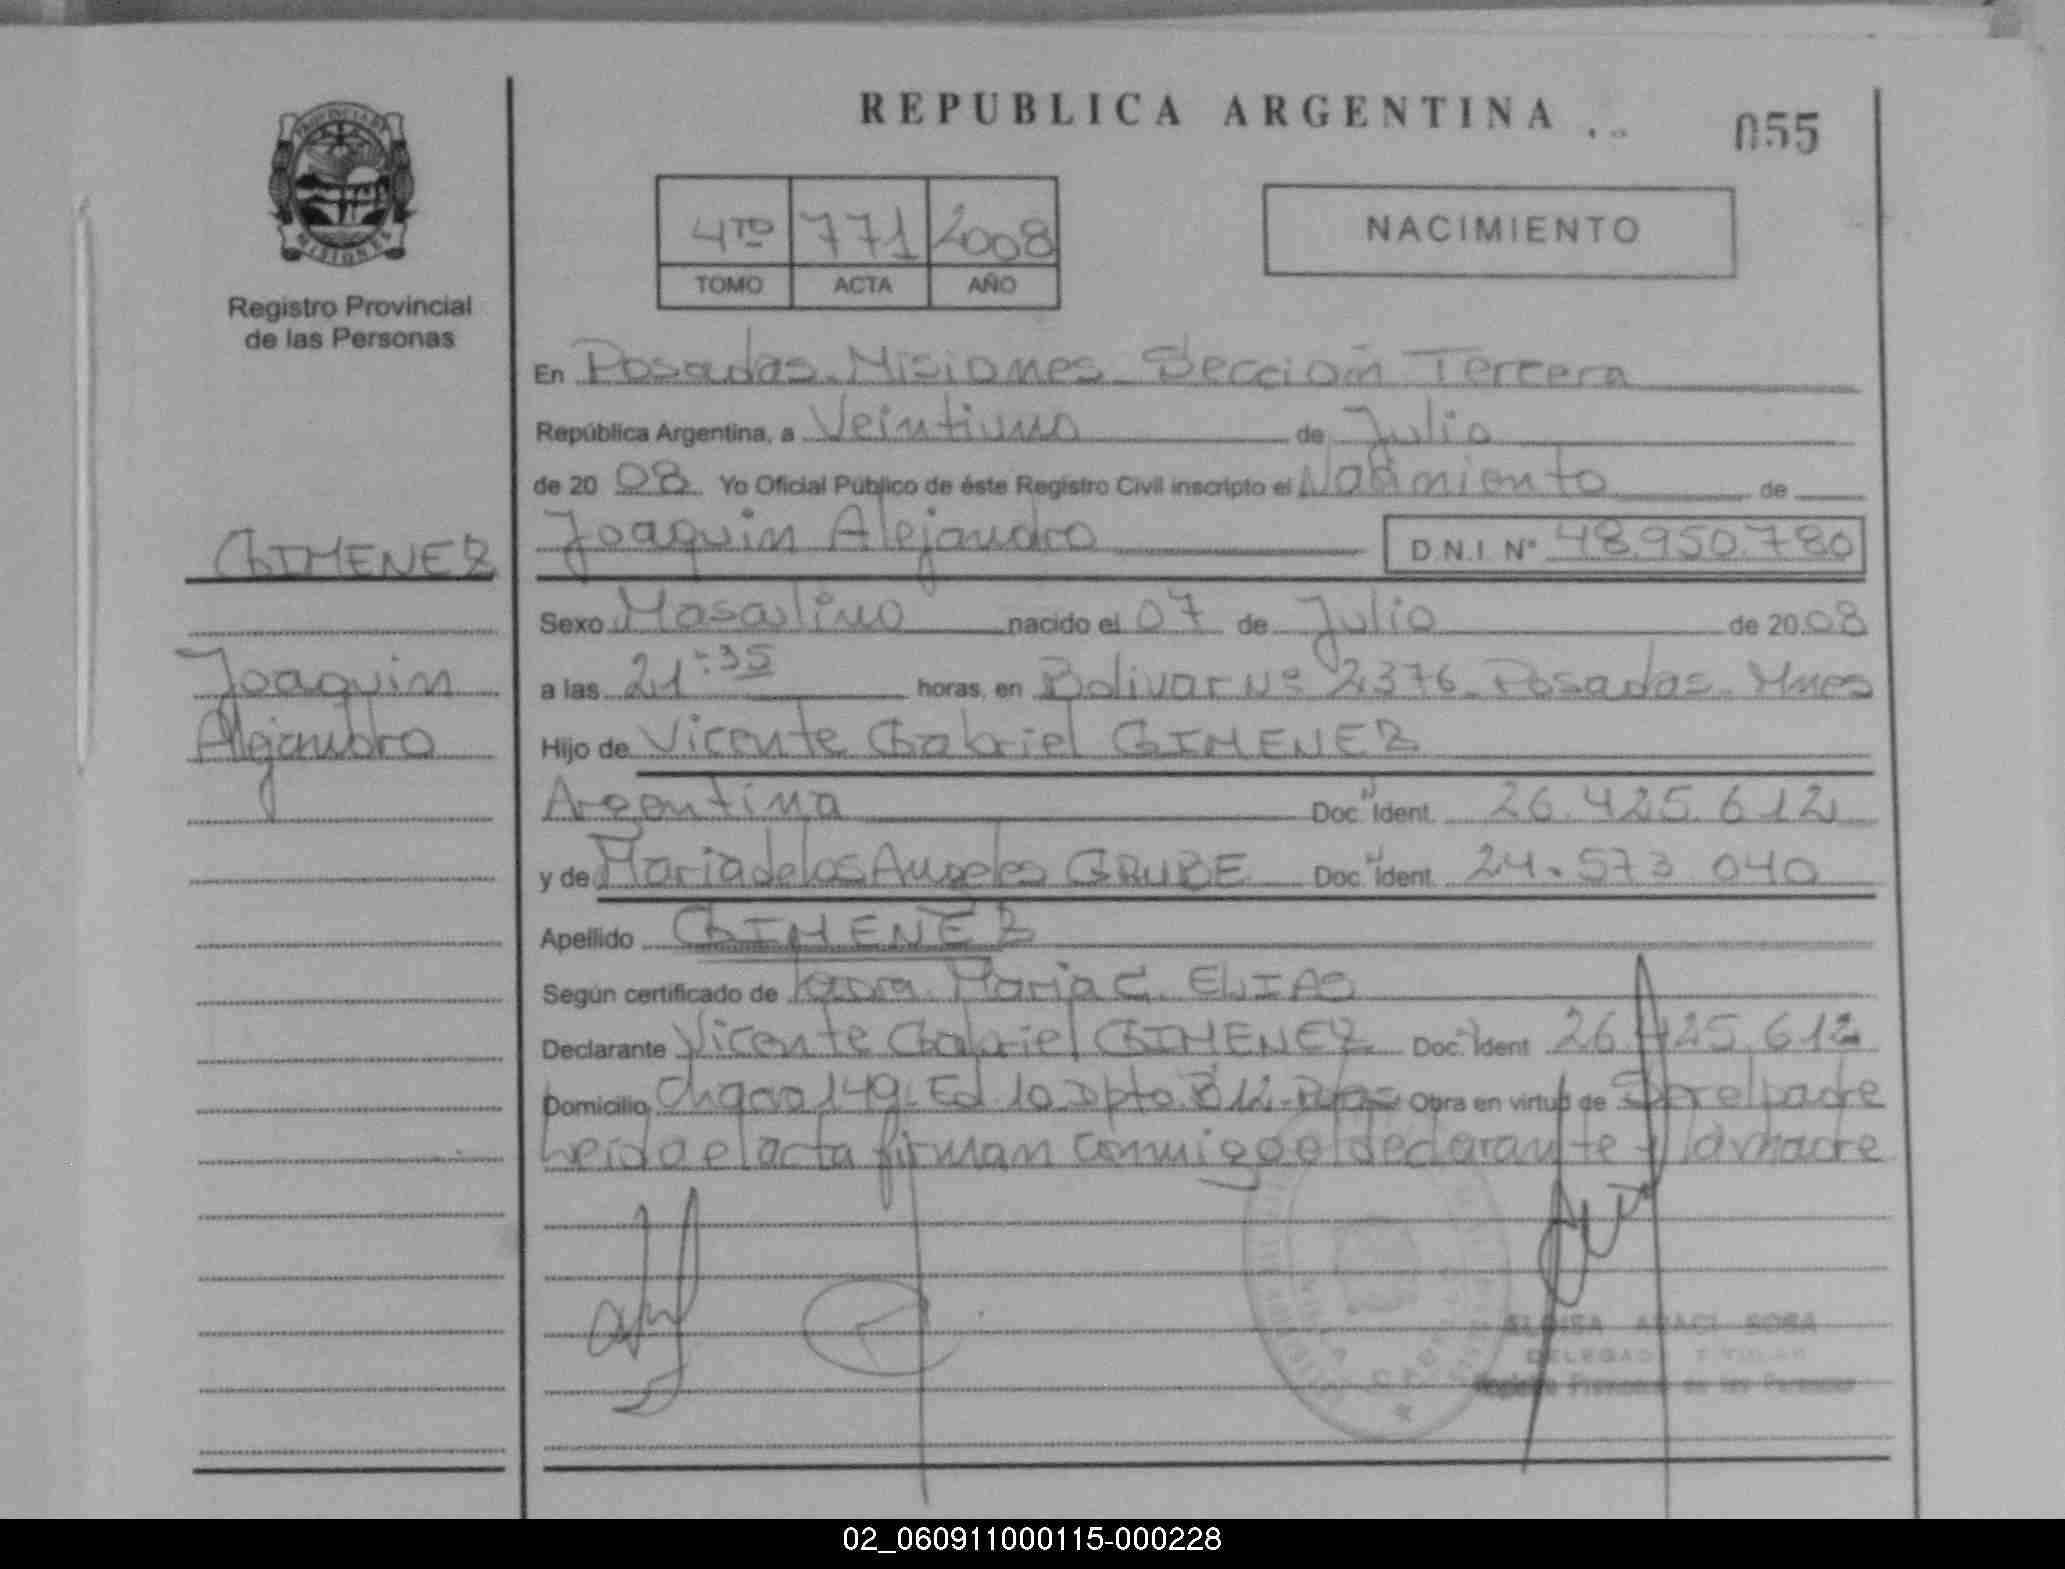 REPUBLICA ARGENTINA
055
PROVINCIA DE
MISIONES
Registro Provincial
de las Personas
4TO 771 2008
TOMO ACTA AÑO
NACIMIENTO
En Posadas. Misiones. Sección Tercera
República Argentina, a Veintiuno de Julio
de 20 08 Yo Oficial Público de éste Registro Civil inscripto el Nacimiento de
Joaquin Alejandro D.N.I. N° 48.950.780
GIMENEZ
Joaquin
Alejandro
Sexo Masculino nacido el 07 de Julio de 20 08
a las 21:35 horas, en Bolivar Nº 2376. Posadas. Mnes
Hijo de Vicente Gabriel GIMENEZ
Argentina Doc. Ident. 26.425.612
y de Maria de los Angeles GRUBE Doc. Ident. 24.573.040
Apellido GIMENEZ
Según certificado de Maria C. ELIAS
Declarante Vicente Gabriel GIMENEZ Doc. Ident 26.425.612
Domicilio 149. Ed. 10 Dpto Obra en virtud de Ser el padre
Leida el acta firman conmigo el declarante y la madre
ELOISA ARACI SOSA
DELEGADA TITULAR
Registro Provincial de las Personas
02_060911000115-000228